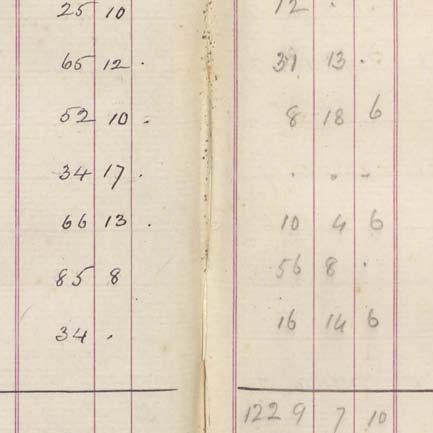 25 10
65 12 .
52 10 .
34 17 .
66 13 .
85 8
34 .
12 .
31 13 .
8 18 6
. . .
10 4 6
56 8 .
16 14 6
122 9 7 10